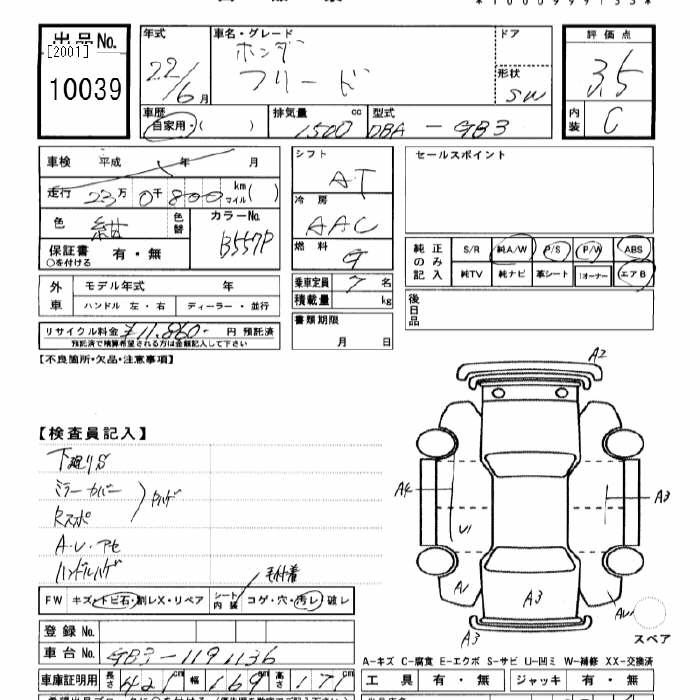 出品No.
[2001]
10039
年式
22/6月
車名・グレード
ホンダ
フリード
ドア
形状
SW
評価点
3.5
内装
C
車歴
自家用・( )
排気量
cc
1500
型式
DBA-GB3
車検 平成 年 月
走行 23万 0千 800 km マイル( )
色
紺
色替
カラーNo.
B557P
保証書
○を付ける
有・無
外車
モデル年式 年
ハンドル 左・右
ディーラー・並行
リサイクル料金 ¥11,860- 円 預託済
預託済で精算希望される方は金額記入して下さい
シフト
AT
冷房
AAC
燃料
G
乗車定員 7 名
積載量 kg
書類期限
月 日
セールスポイント
純正のみ記入
S/R 純A/W P/S P/W ABS
純TV 純ナビ 革シート 1オーナー エアB
後日品
【不良箇所・欠品・注意事項】
【検査員記入】
下廻りS
ミラーカバー
Rスポ
A・U・アセ
ハンドルハゲ
FW キズ・トビ石・割レX・リペア
シート内装
コゲ・穴・汚レ・破レ
登録No.
車台No. GB3-1191136
車庫証明用
長さ 421 cm 幅 169 cm 高さ 171 cm
A2
A4
U1
A3
A1
A3
AU
A3
スペア
A-キズ C-腐食 E-エクボ S-サビ U-凹ミ W-補修 XX-交換済
工具 有・無 ジャッキ 有・無